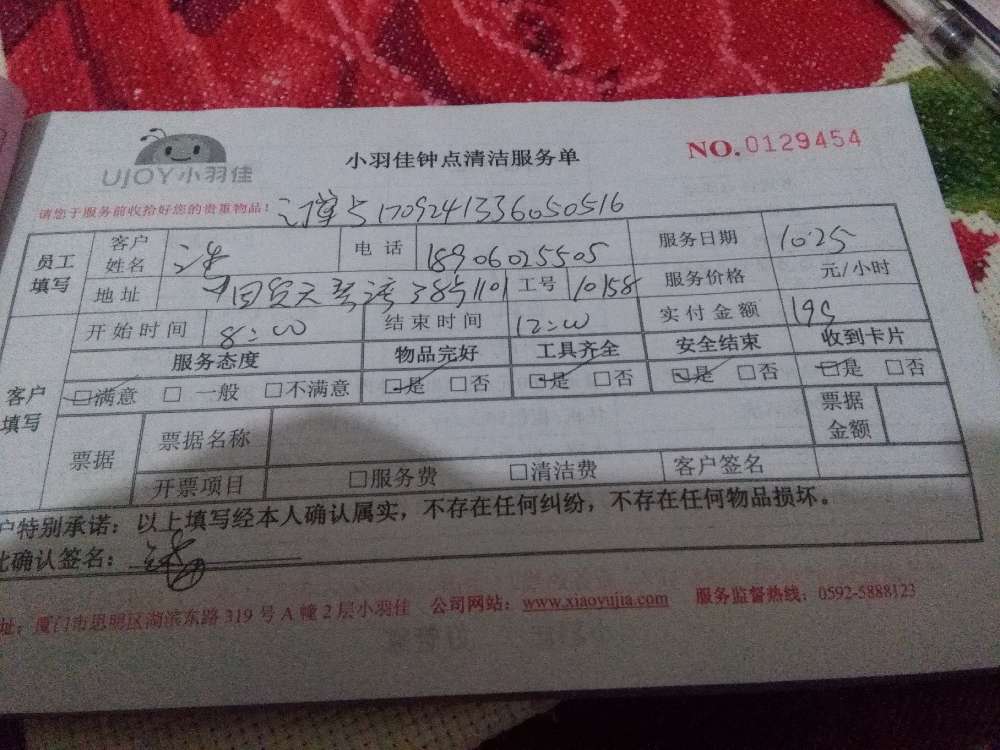 UJOY小羽佳
小羽佳钟点清洁服务单
NO.0129454
请您于服务前收拾好您的贵重物品! 订单号1709241336050516
员工填写 客户姓名 电话 18906025505 服务日期 10.25
地址 国贸天琴湾 385 1101 工号 10158 服务价格 元/小时
客户填写 开始时间 8:00 结束时间 12:00 实付金额
服务态度 物品完好 工具齐全 安全结束 收到卡片
□满意 □ 一般 □不满意 □是 □否 □是 □否 □是 □否 □是 □否
票据 票据名称 票据金额
开票项目 □服务费 □清洁费 客户签名
户特别承诺:以上填写经本人确认属实,不存在任何纠纷,不存在任何物品损坏。
此确认签名:
址:厦门市思明区湖滨东路 319 号 A 幢 2 层小羽佳 公司网站:www.xiaoyujia.com 服务监督热线:0592-5888123